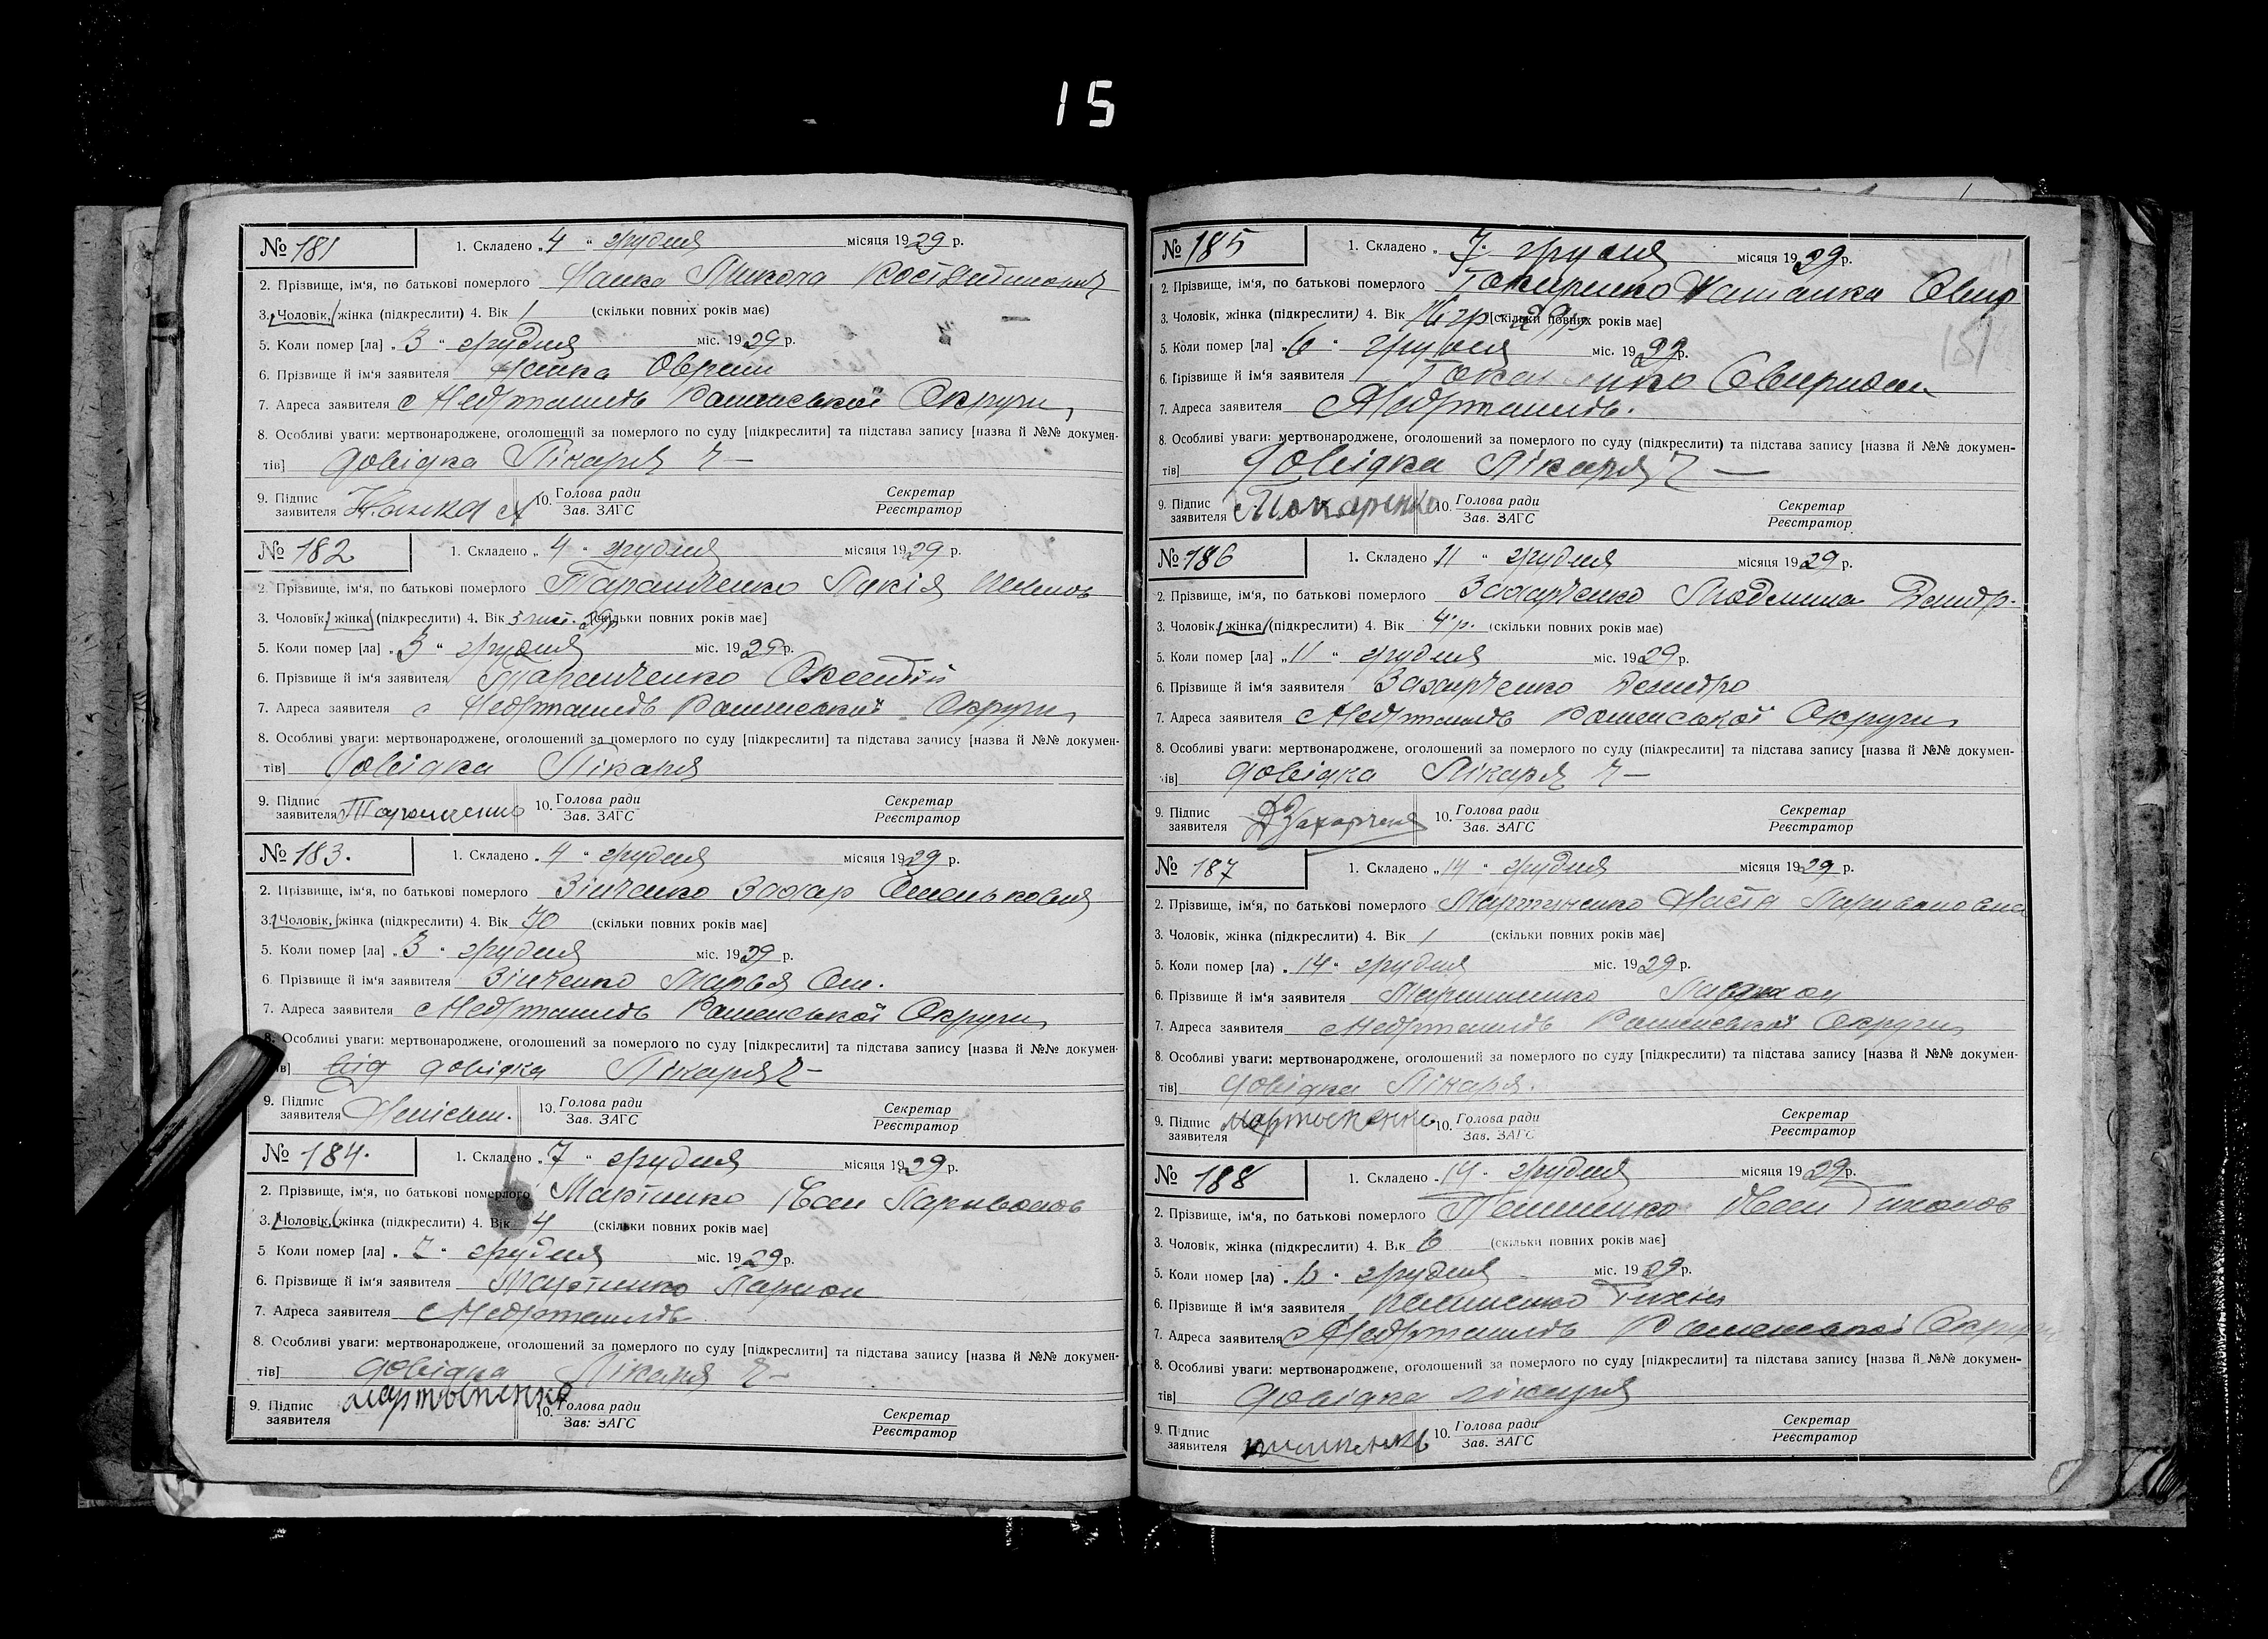 15
№ 181
1. Складено „ 4 “ грудня місяця 1929 р.
2. Прізвище, ім'я, по батькові померлого Микола
3. Чоловік, жінка (підкреслити) 4. Вік 1 (скільки повних років має)
5. Коли помер [ла] „ 3 “ грудня міс. 1929 р.
6. Прізвище й ім'я заявителя
7. Адреса заявителя с Недригайлів Роменської Округи
8. Особливі уваги: мертвонароджене, оголошений за померлого по суду [підкреслити] та підстава запису [назва й №№ докумен-
тів] довідка Лікаря
9. Підпис заявителя 10. Голова ради Зав. ЗАГС Секретар Реєстратор
№ 182
1. Складено „ 4 “ грудня місяця 1929 р.
2. Прізвище, ім'я, по батькові померлого
3. Чоловік, жінка (підкреслити) 4. Вік 3 [скільки повних років має]
5. Коли помер [ла] „ 3 “ грудня міс. 1929 р.
6. Прізвище й ім'я заявителя
7. Адреса заявителя с Недригайлів Роменської Округи
8. Особливі уваги: мертвонароджене, оголошений за померлого по суду [підкреслити] та підстава запису [назва й №№ докумен-
тів] довідка Лікаря
9. Підпис заявителя 10. Голова ради Зав. ЗАГС Секретар Реєстратор
№ 183.
1. Складено „ 4 “ грудня місяця 1929 р.
2. Прізвище, ім'я, по батькові померлого Зінченко Захар Омелькович
3. Чоловік, жінка (підкреслити) 4. Вік 70 (скільки повних років має]
5. Коли помер [ла] „ 3 “ грудня міс. 1929 р.
6. Прізвище й ім'я заявителя Зінченко Марья Ом.
7. Адреса заявителя с Недригайлів Роменської Округи
8. Особливі уваги: мертвонароджене, оголошений за померлого по суду [підкреслити] та підстава запису [назва й №№ докумен-
тів] від довідка Лікаря
9. Підпис заявителя Неписьм. 10. Голова ради Зав. ЗАГС Секретар Реєстратор
№ 184.
1. Складено „ 7 “ грудня місяця 1929 р.
2. Прізвище, ім'я, по батькові померлого Іван
3. Чоловік, жінка (підкреслити) 4. Вік 4 (скільки повних років має]
5 Коли помер [ла] „ 7 “ грудня міс. 1929 р.
6. Прізвище й ім'я заявителя
7. Адреса заявителя с Недригайлів
8. Особливі уваги: мертвонароджене, оголошений за померлого по суду [підкреслити] та підстава запису [назва й №№ докумен-
тів] довідка Лікаря
9. Підпис заявителя мартыненко 10. Голова ради Зав. ЗАГС Секретар Реєстратор
№ 185
1. Складено „ 7 “ грудня місяця 1929 р.
2. Прізвище, ім'я, по батькові померлого
3. Чоловік, жінка (підкреслити) 4. Вік [скільки повних років має]
151
5. Коли помер [ла] „ 6 “ грудня міс. 1929 р.
6. Прізвище й ім'я заявителя Свиридон
7. Адреса заявителя с Недригайлів.
8. Особливі уваги: мертвонароджене, оголошений за померлого по суду (підкреслити) та підстава запису [назва й №№ докумен-
тів] довідка Лікаря
9. Підпис заявителя 10. Голова ради Зав. ЗАГС Секретар Реєстратор
№ 186
1. Складено 11 “ грудня місяця 1929 р.
2. Прізвище, ім'я, по батькові померлого Захарченко Людмила
3. Чоловік, жінка (підкреслити) 4. Вік 4 р. (скільки повних років має)
5. Коли помер [ла] „ 11 “ грудня міс. 1929 р.
6. Прізвище й ім'я заявителя Захарченко
7. Адреса заявителя с Недригайлів Роменської Округи
8. Особливі уваги: мертвонароджене, оголошений за померлого по суду (підкреслити] та підстава запису [назва й №№ докумен-
тів] довідка Лікаря
9. Підпис заявителя 10. Голова ради Зав. ЗАГС Секретар Реєстратор
№ 187
1. Складено „ 14 “ грудня місяця 1929 р.
2. Прізвище, ім'я, по батькові померлого Мартиненко Настя
3. Чоловік, жінка (підкреслити) 4. Вік 1 (скільки повних років має]
5. Коли помер [ла) „ 14 “ грудня міс. 1929 р.
6. Прізвище й ім'я заявителя Мартиненко
7. Адреса заявителя с Недригайлів Роменської Округи
8. Особливі уваги: мертвонароджене, оголошений за померлого по суду [підкреслити) та підстава запису [назва й №№ докумен-
тів] довідка Лікаря.
9. Підпис заявителя мартыненко 10. Голова ради Зав. ЗАГС Секретар Реєстратор
№ 188
1. Складено „ 14 “ грудня місяця 1929 р.
2. Прізвище, ім'я, по батькові померлого Іван Тихонов
3. Чоловік, жінка (підкреслити) 4. Вік 6 (скільки повних років має]
5. Коли помер [ла) „ “ грудня міс. 1929 р.
6. Прізвище й ім'я заявителя Тихін
7. Адреса заявителя с Недригайлів Роменської Округи
8. Особливі уваги: мертвонароджене, оголошений за померлого по суду [підкреслити] та підстава запису [назва й №№ докумен-
тів] довідка лікаря
9. Підпис заявителя 10. Голова ради Зав. ЗАГС Секретар Реєстратор